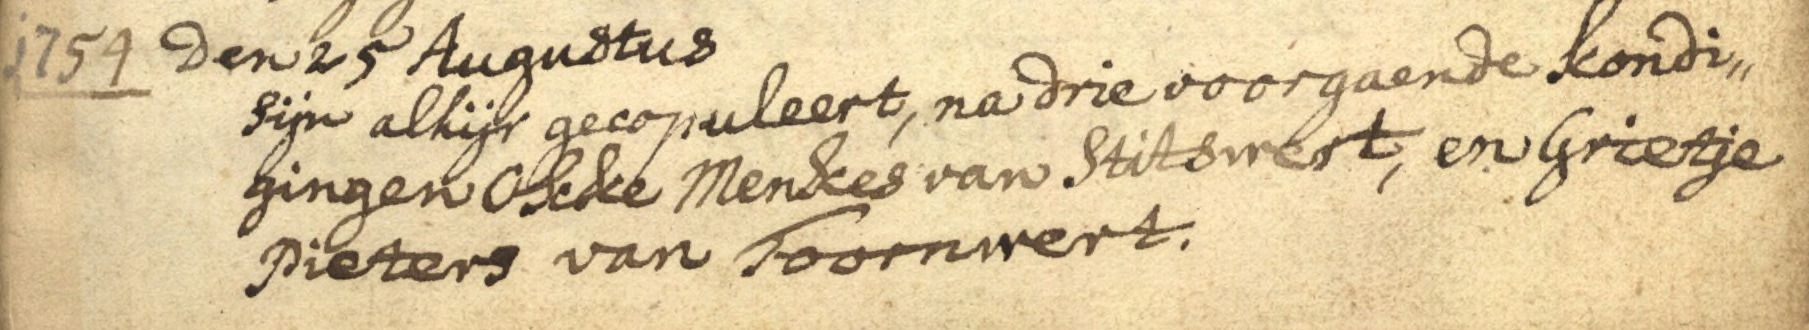 1754 Den 25 Augustus
sijn alhijr gecopuleert, na drie voorgaende kondi„
gingen Okke Menkes van Stitswert, en Grietje
Pieters van Toornwert.